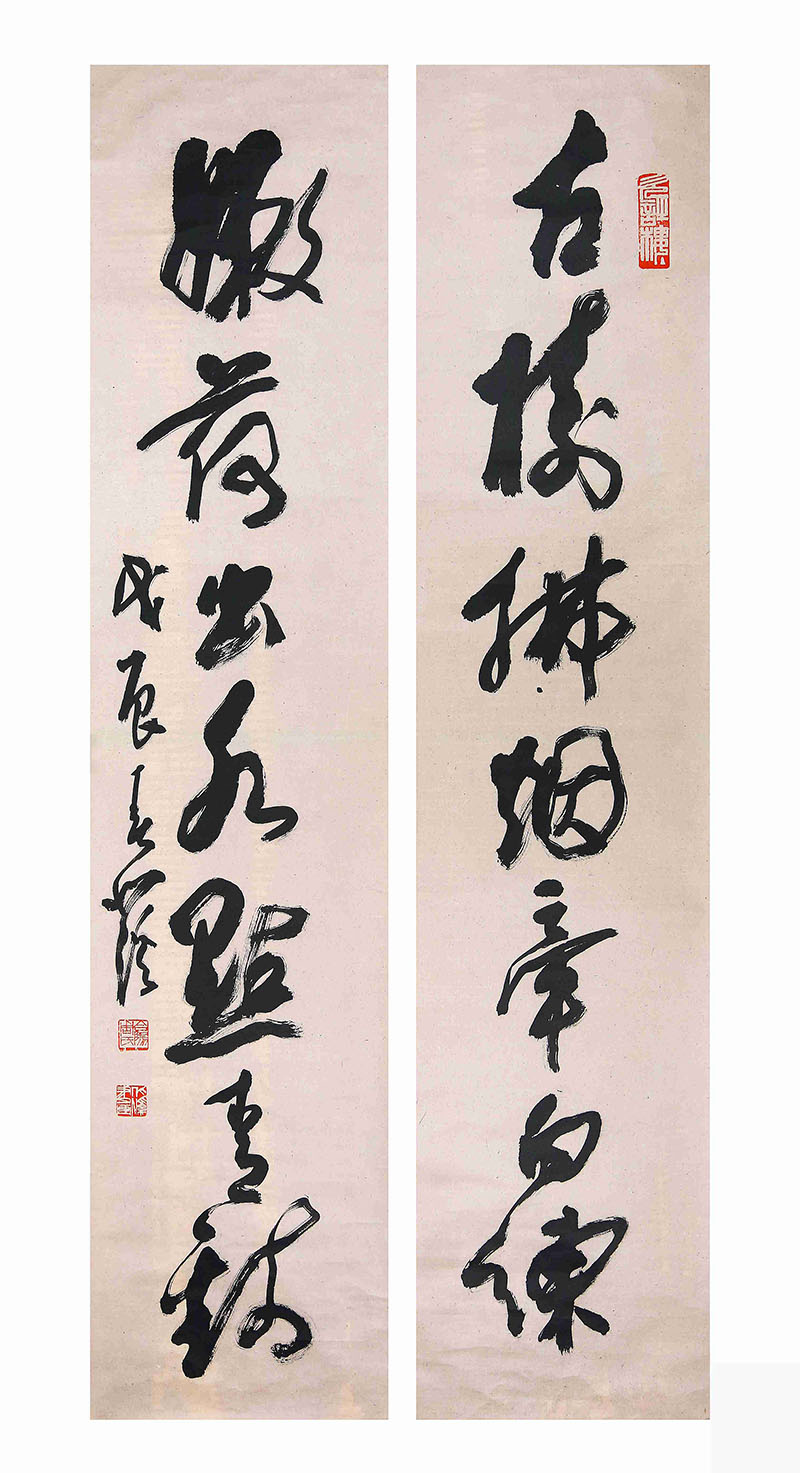 古樹拂烟牽白練
嫩荷出水點青錢
戊辰